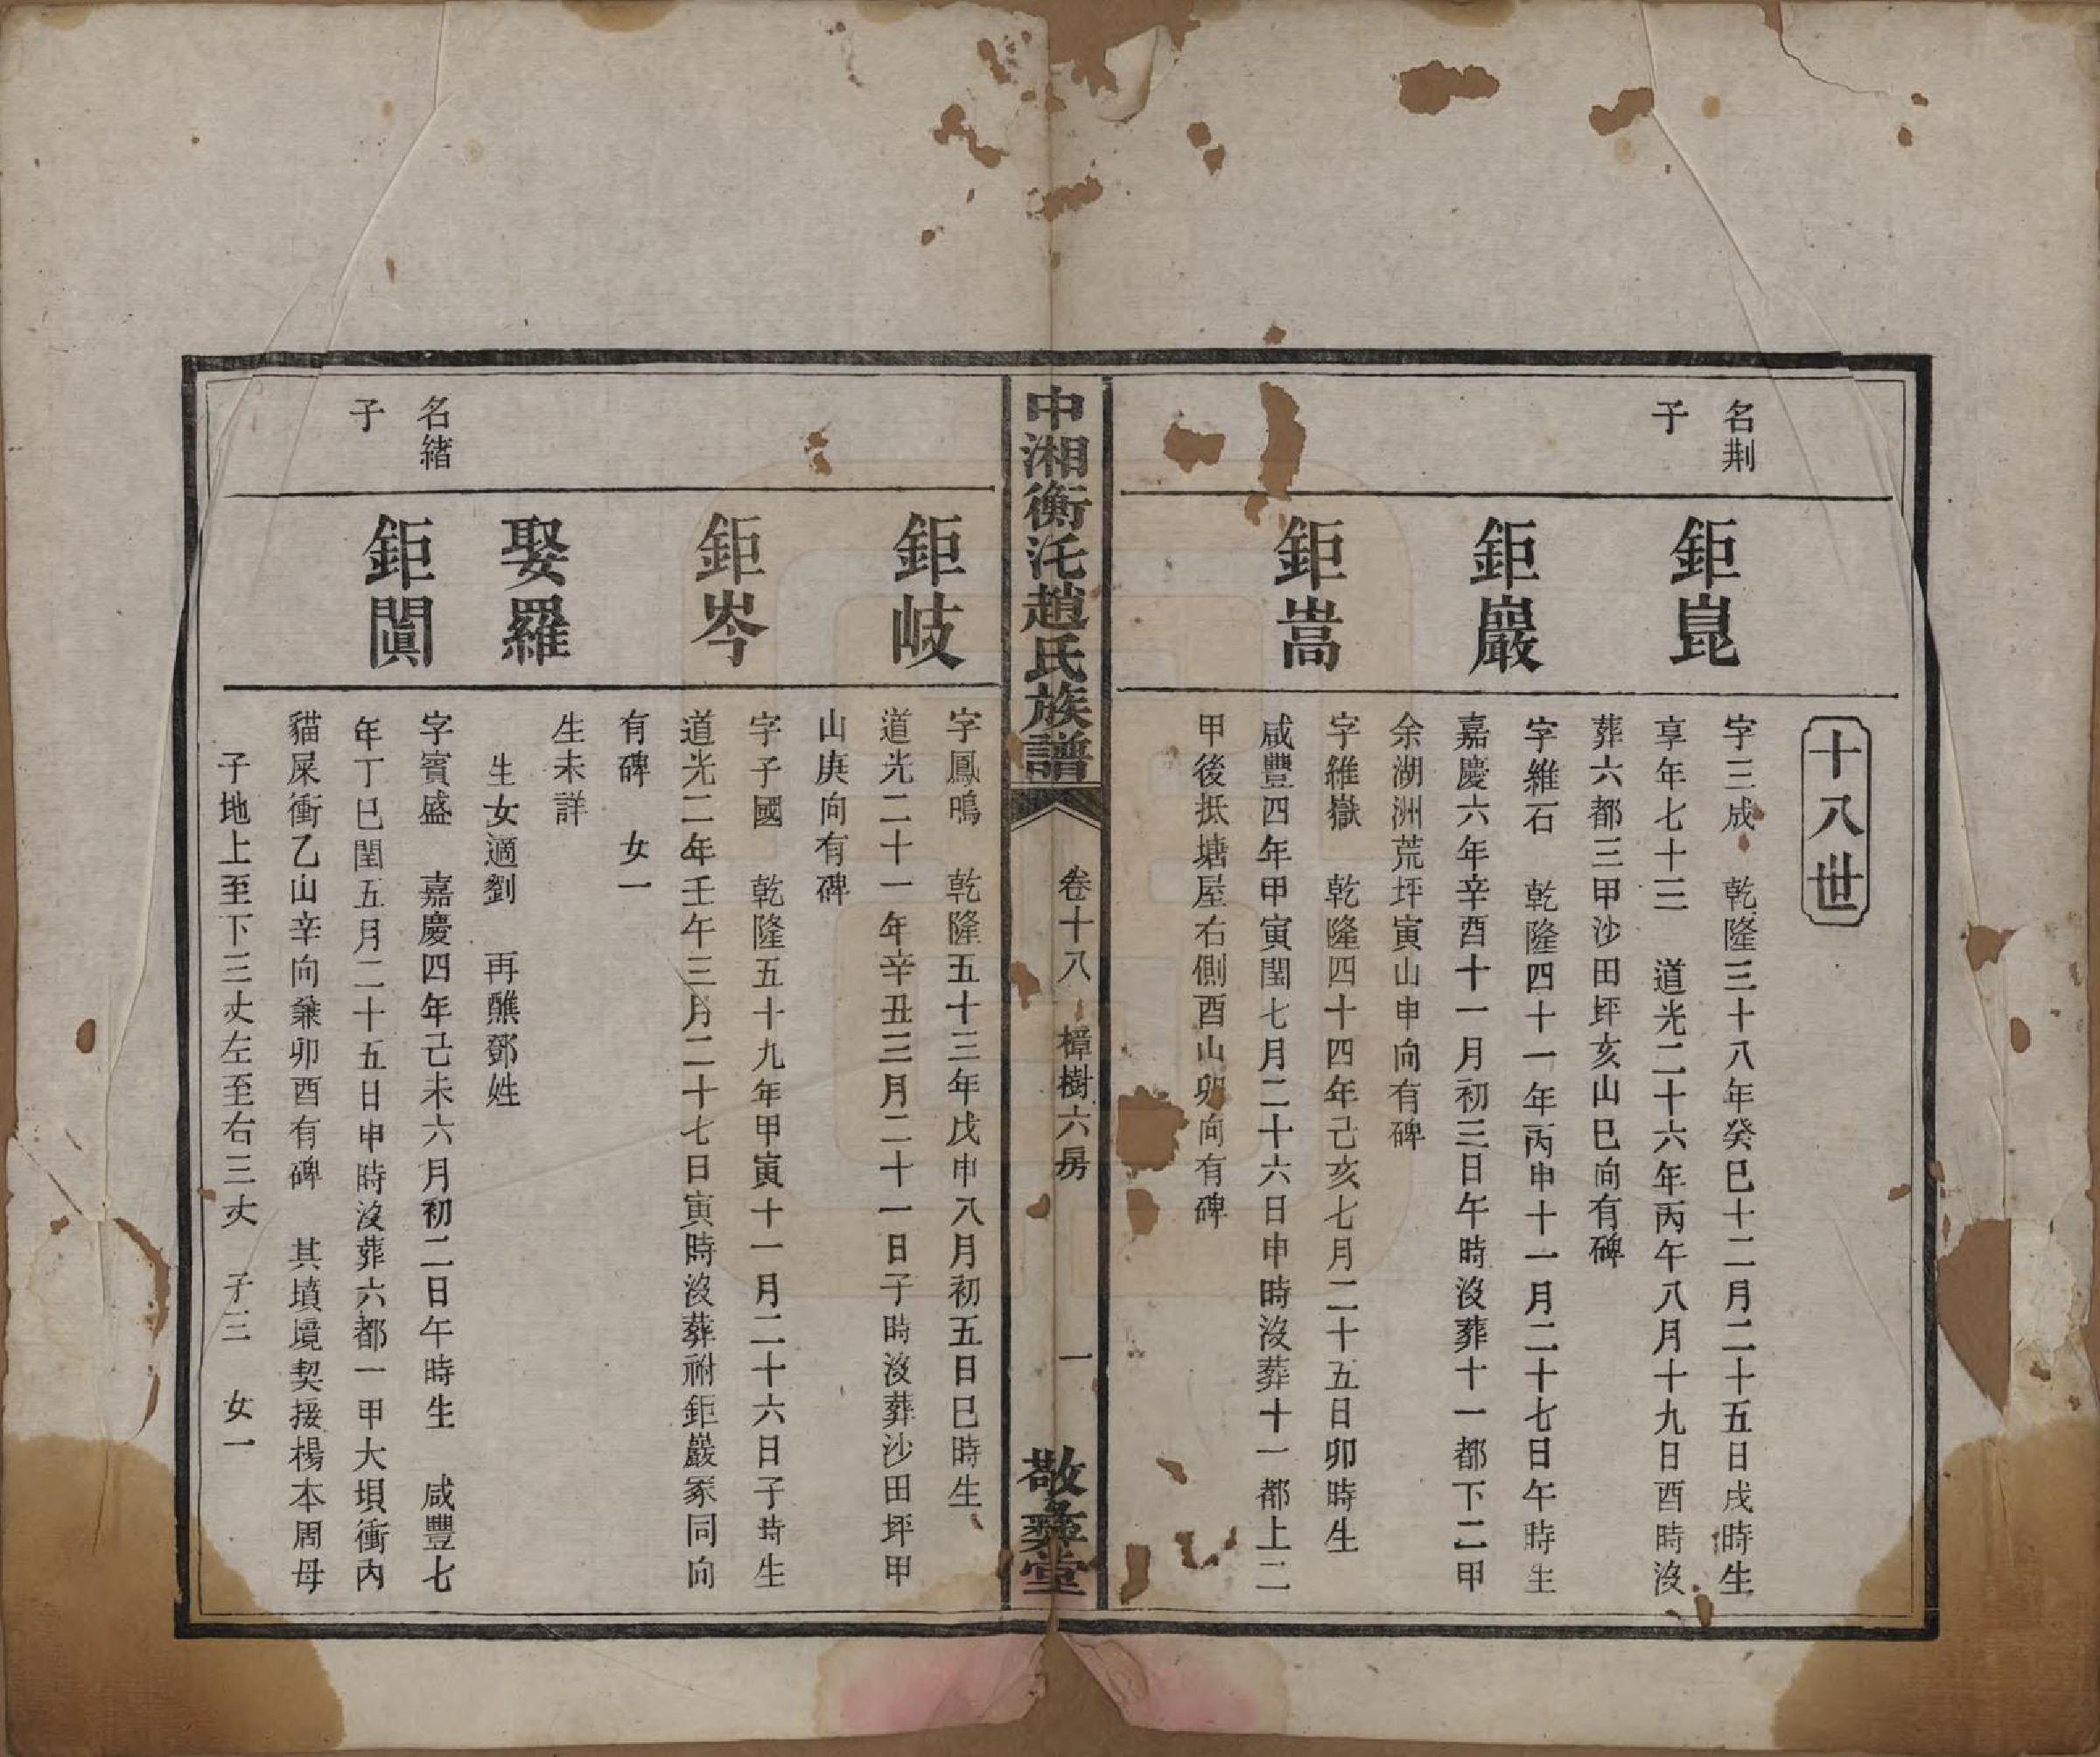 十八世
名荆
子
鉅崑
字三成 乾隆三十八年癸巳十二月二十五日戌時生
享年七十三 道光二十六年丙午八月十九日酉時沒
葬六都三甲沙田坪亥山巳向有碑
鉅巖
字維石 乾隆四十一年丙申十一月二十七日午時生
嘉慶六年辛酉十一月初三日午時沒葬十一都下二甲
余湖洲荒坪寅山申向有碑
鉅嵩
字維嶽 乾隆四十四年己亥七月二十五日卯時生
咸豐四年甲寅閏七月二十六日申時沒葬十一都上二
甲後抵塘屋右側酉山卯向有碑
中湘衡汑趙氏族譜
卷十八 樟樹六房
一
敬彝堂
鉅岐
字鳳鳴 乾隆五十三年戊申八月初五日巳時生
道光二十一年辛丑三月二十一日子時沒葬沙田坪甲
山庚向有碑
鉅岑
字子國 乾隆五十九年甲寅十一月二十六日子時生
道光二年壬午三月二十七日寅時沒葬祔鉅巖冢同向
有碑 女一
娶羅
生未詳
生女適劉 再醮鄧姓
名緒
子
鉅闐
字賓盛 嘉慶四年己未六月初二日午時生 咸豐七
年丁巳閏五月二十五日申時沒葬六都一甲大垻衝內
貓屎衝乙山辛向兼卯酉有碑 其墳境契接楊本周母
子地上至下三丈左至右三丈 子三 女一